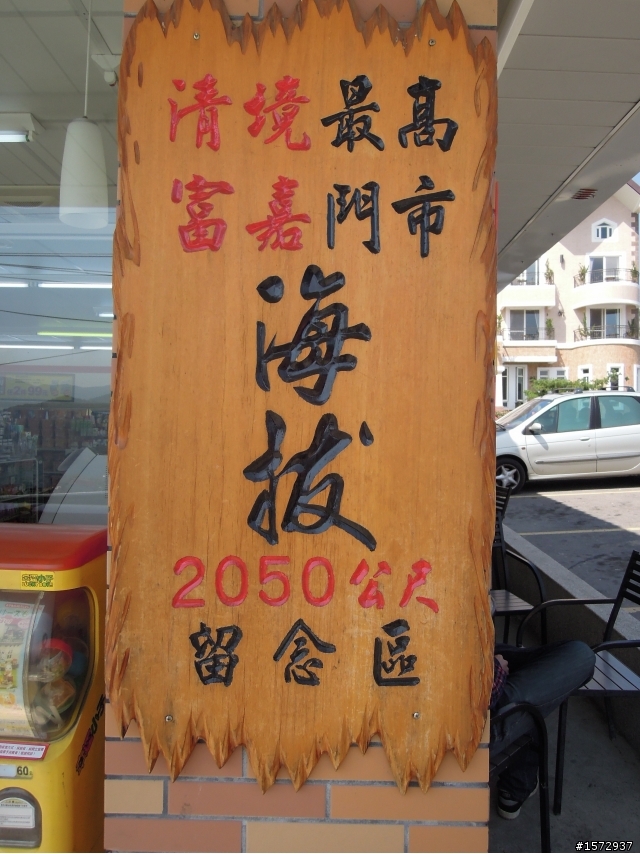 清境最高
富嘉門市
海
拔
2050公尺
留念區
60
#1572937